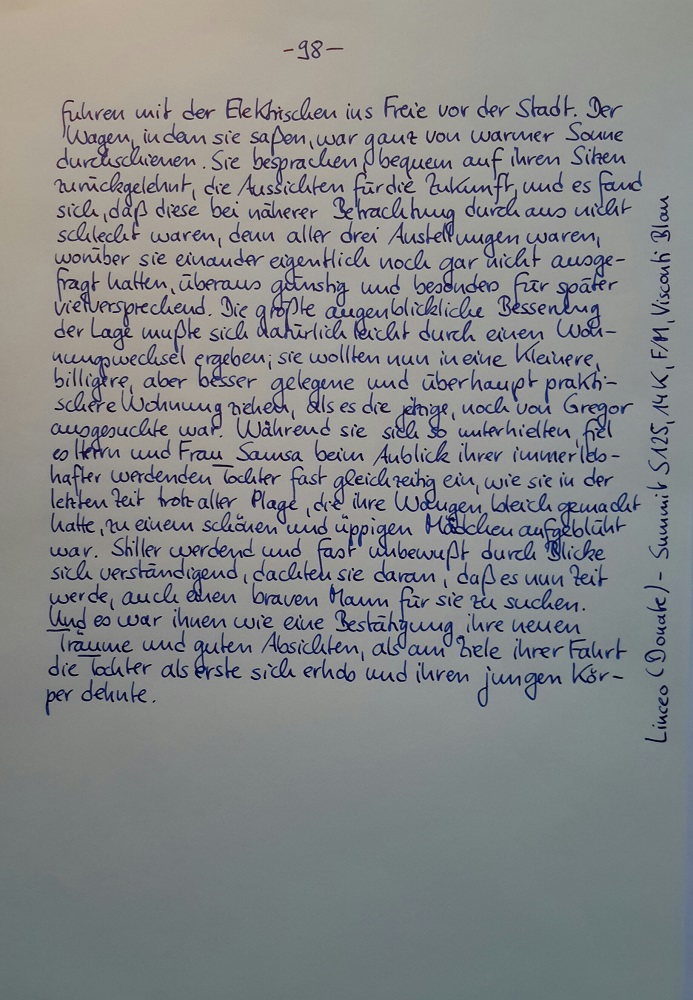 -98-
fuhren mit der Elektrischen ins Freie vor der Stadt. Der
Wagen, in dem sie saßen, war ganz von warmer Sonne
durchschienen. Sie besprachen, bequem auf ihren Sitzen
zurückgelehnt, die Aussichten für die Zukunft, und es fand
sich, daß diese bei näherer Betrachtung durchaus nicht
schlecht waren, denn aller drei Anstellungen waren,
worüber sie einander eigentlich noch gar nicht ausge-
fragt hatten, überaus günstig und besonders für später
vielversprechend. Die größte augenblickliche Besserung
der Lage mußte sich natürlich leicht durch einen Woh-
nungswechsel ergeben; sie wollten nun in eine kleinere,
billigere, aber besser gelegene und überhaupt prakti-
schere Wohnung ziehen, als es die jetzige, noch von Gregor
ausgesuchte war. Während sie sich so unterhielten, fiel
es Herrn und Frau Samsa beim Anblick ihrer immer leb-
hafter werdenden Tochter fast gleichzeitig ein, wie sie in der
letzten Zeit trotz aller Plage, die ihre Wangen bleich gemacht
hatte, zu einem schönen und üppigen Mädchen aufgeblüht
war. Stiller werdend und fast unbewußt durch Blicke
sich verständigend, dachten sie daran, daß es nun Zeit
werde, auch einen braven Mann für sie zu suchen.
Und es war ihnen wie eine Bestätigung ihre neuen
Träume und guten Absichten, als am Ziele ihrer Fahrt
die Tochter als erste sich erhob und ihren jungen Kör-
per dehnte.
Linceo (Donate) - Summit S125, 14K, F/M, Visconti Blau